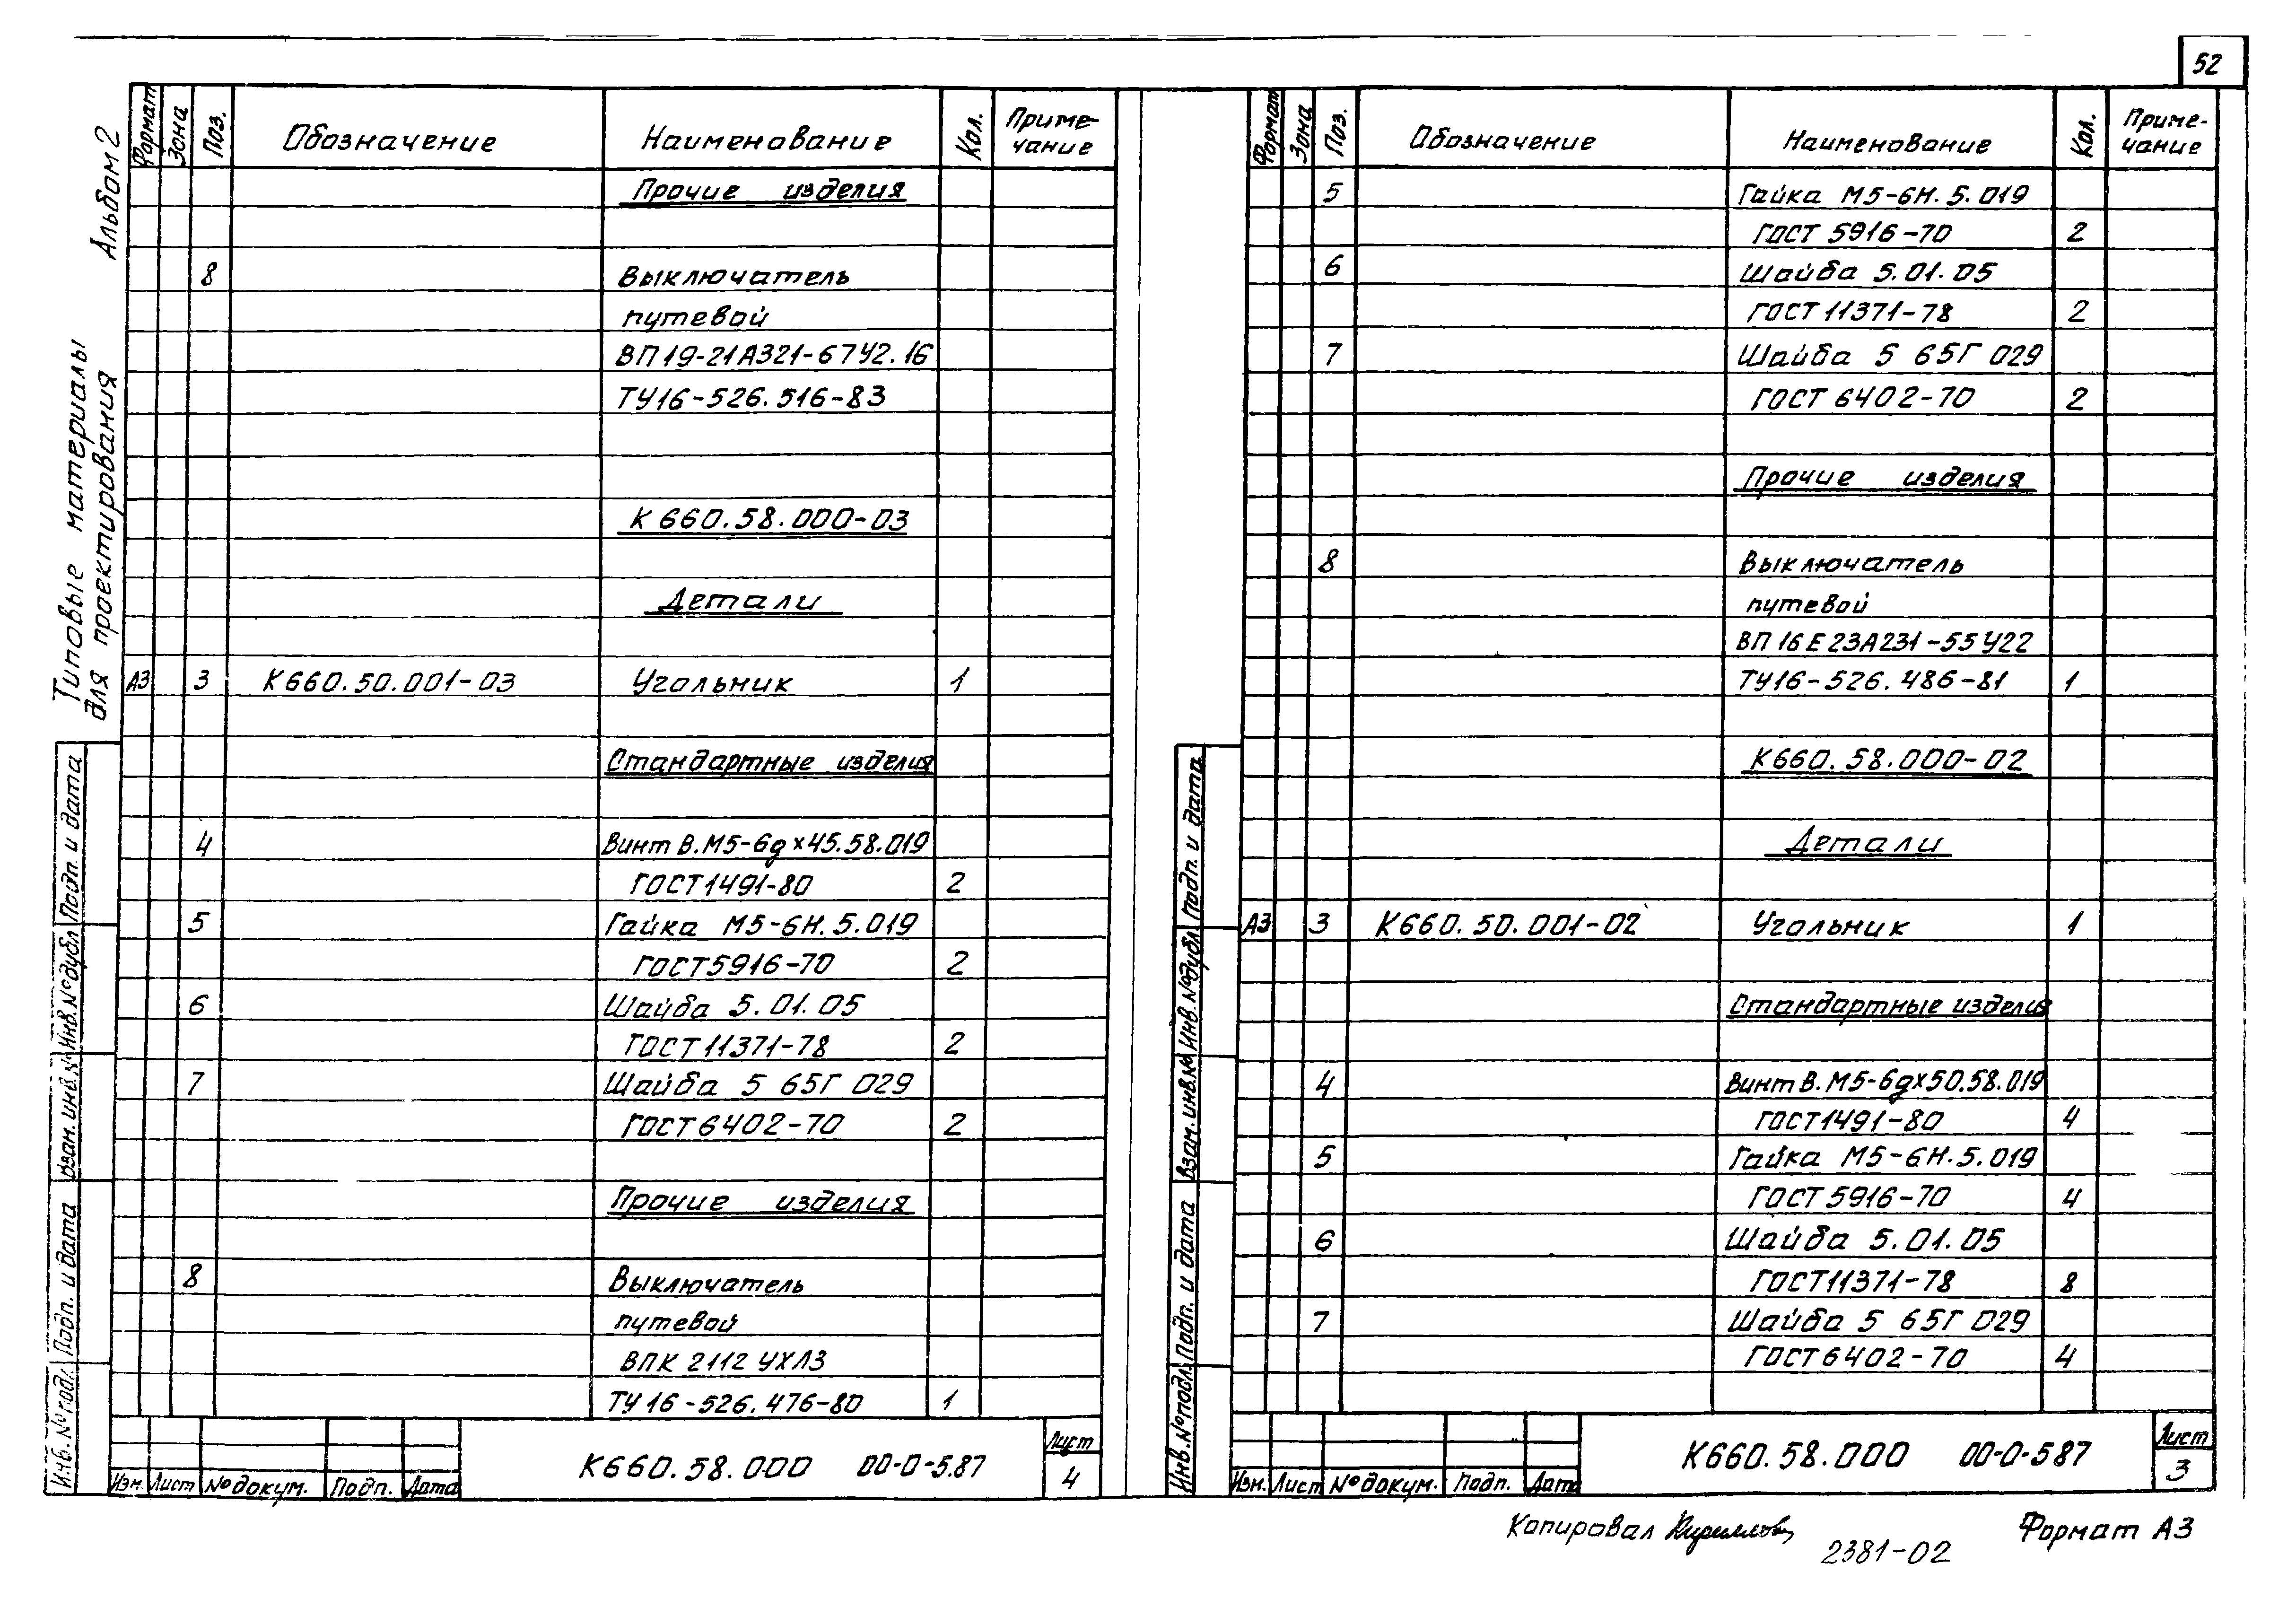 52
Альбом 2
Типовые материалы
для проектирования
Формат Зона Поз. Обозначение Наименование Кол. Приме-
чание
Прочие изделия
8 Выключатель
путевой
ВП19-21А321-67У2.16
ТУ16-526.516-83
К660.58.000-03
Детали
А3 3 К660.50.001-03 Угольник 1
Стандартные изделия
4 Винт В.М5-6gх45.58.019
ГОСТ1491-80 2
5 Гайка М5-6Н.5.019
ГОСТ5916-70 2
6 Шайба 5.01.05
ГОСТ11371-78 2
7 Шайба 5 65Г 029
ГОСТ6402-70 2
Прочие изделия
8 Выключатель
путевой
ВПК 2112 УХЛ3
ТУ16-526.476-80 1
Инв.№подл. Подп. и дата Взам.инв.№ Инв.№дубл. Подп. и дата
Изм. Лист №докум. Подп. Дата
К660.58.000 00-0-5.87
Лист
4
Формат Зона Поз. Обозначение Наименование Кол. Приме-
чание
5 Гайка М5-6Н.5.019
ГОСТ 5916-70 2
6 Шайба 5.01.05
ГОСТ11371-78 2
7 Шайба 5 65Г 029
ГОСТ 6402-70 2
Прочие изделия
8 Выключатель
путевой
ВП16Е23А231-55У22
ТУ16-526.486-81 1
К660.58.000-02
Детали
А3 3 К660.50.001-02 Угольник 1
Стандартные изделия
4 Винт В.М5-6gх50.58.019
ГОСТ1491-80 4
5 Гайка М5-6Н.5.019
ГОСТ5916-70 4
6 Шайба 5.01.05
ГОСТ11371-78 8
7 Шайба 5 65Г 029
ГОСТ6402-70 4
Инв.№подл. Подп. и дата Взам.инв.№ Инв.№дубл. Подп. и дата
Изм. Лист №докум. Подп. Дата
К660.58.000 00-0-587
Лист
3
Копировал Формат А3
2381-02